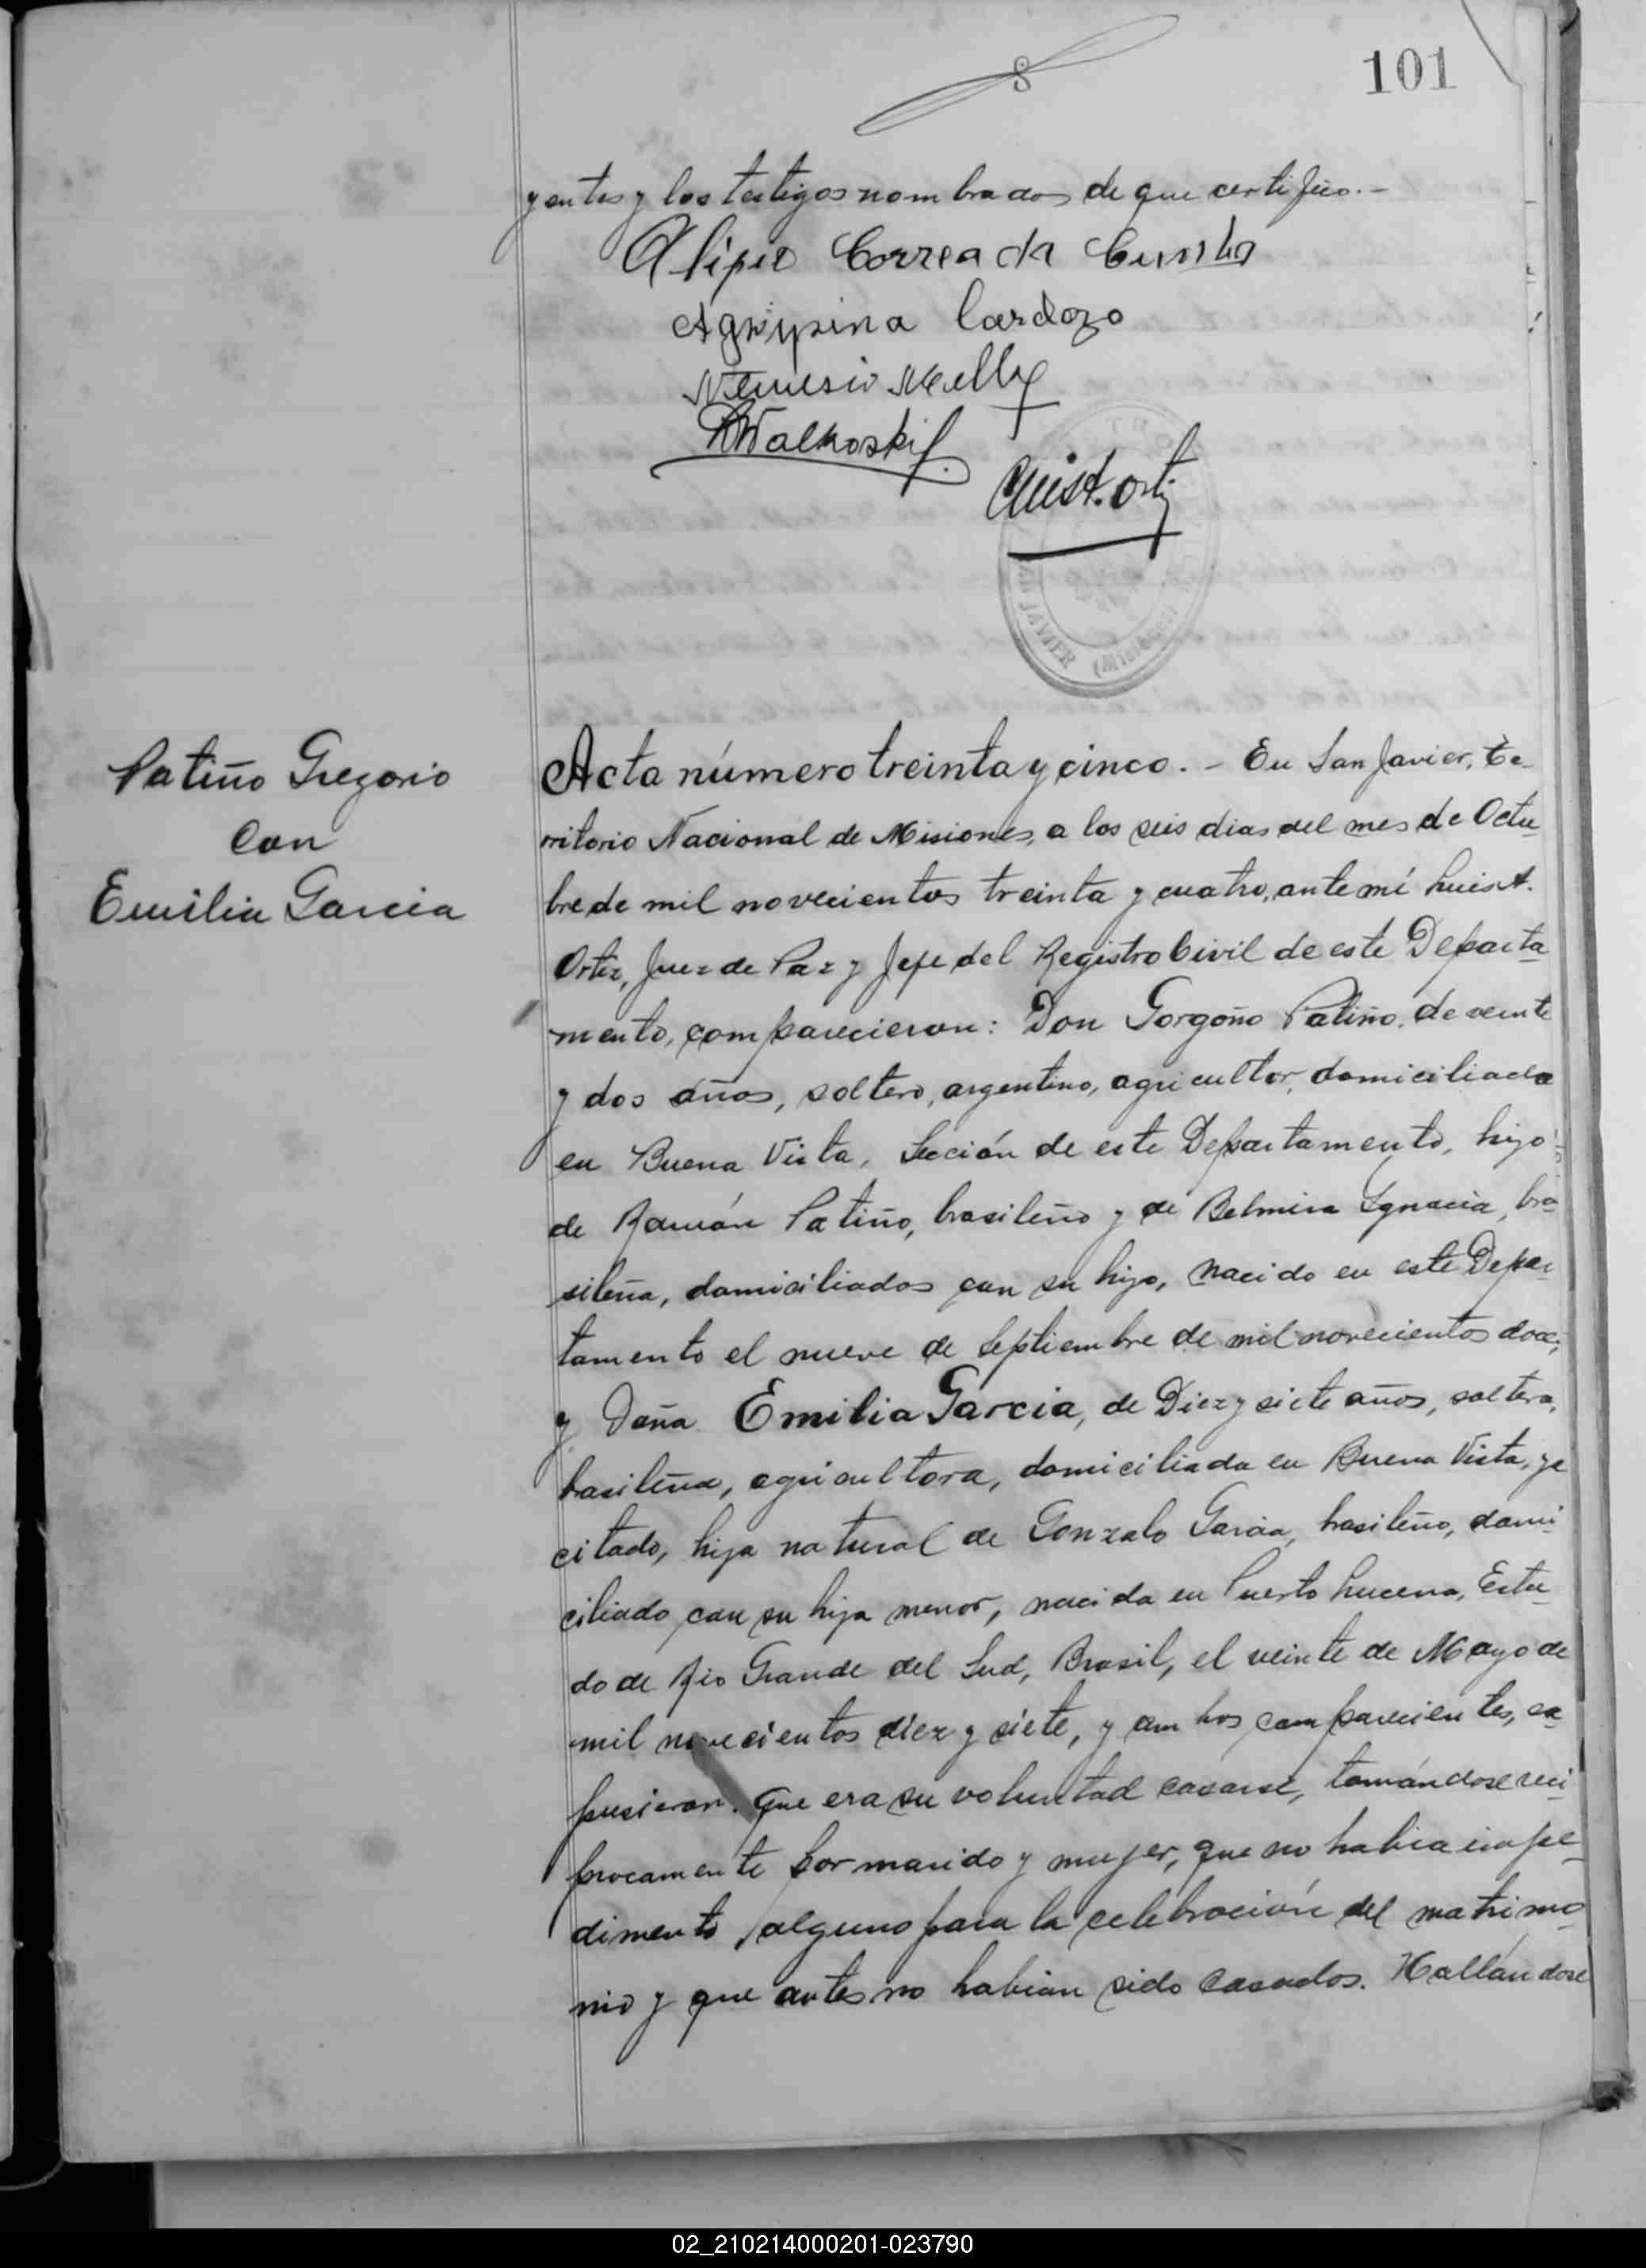 101
yentes y los testigos nombrados de que certifico. -
Alipio Correa da Cunha
Agripina Cardozo
Nemesio Melly
Walkoski
Luis A. Ortiz
SAN JAVIER (Misiones)
Patiño Gregorio
con
Emilia Garcia
Acta número treinta y cinco. - En San Javier, Te-
rritorio Nacional de Misiones, a los seis dias del mes de Octu-
bre de mil novecientos treinta y cuatro, ante mí Luis A.
Ortiz, Juez de Paz y Jefe del Registro Civil de este Departa-
mento, comparecieron: Don Gorgoño Patiño, de veinte
y dos años, soltero, argentino, agricultor, domiciliado
en Buena Vista, Sección de este Departamento, hijo
de Ramón Patiño, brasileño y de Belmira Ignacia, bra-
sileña, domiciliados con su hijo, nacido en este Depar-
tamento el nueve de Septiembre de mil novecientos doce;
y Doña Emilia Garcia, de Diez y siete años, soltera,
brasileña, agricultora, domiciliada en Buena Vista, ya
citado, hija natural de Gonzalo Garcia, brasileño, domi-
ciliado con su hija menor, nacida en Puerto Lucena, Esta-
do de Rio Grande del Sud, Brasil, el veinte de Mayo de
mil novecientos diez y siete, y ambos comparecientes, ex-
pusieron: Que era su voluntad casarse, tomándose reci-
procamente por marido y mujer, que no habia impe-
dimento alguno para la celebración del matrimo-
nio y que antes no habian sido casados. Hallándose
02_210214000201-023790